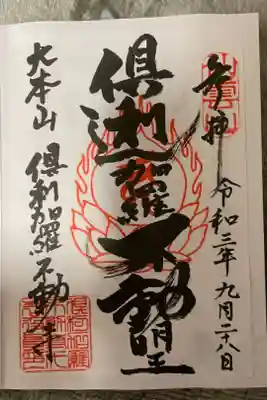 奉拝
令和三年九月二十八日
倶利迦羅
不動明王
大本山 倶利加羅不動寺